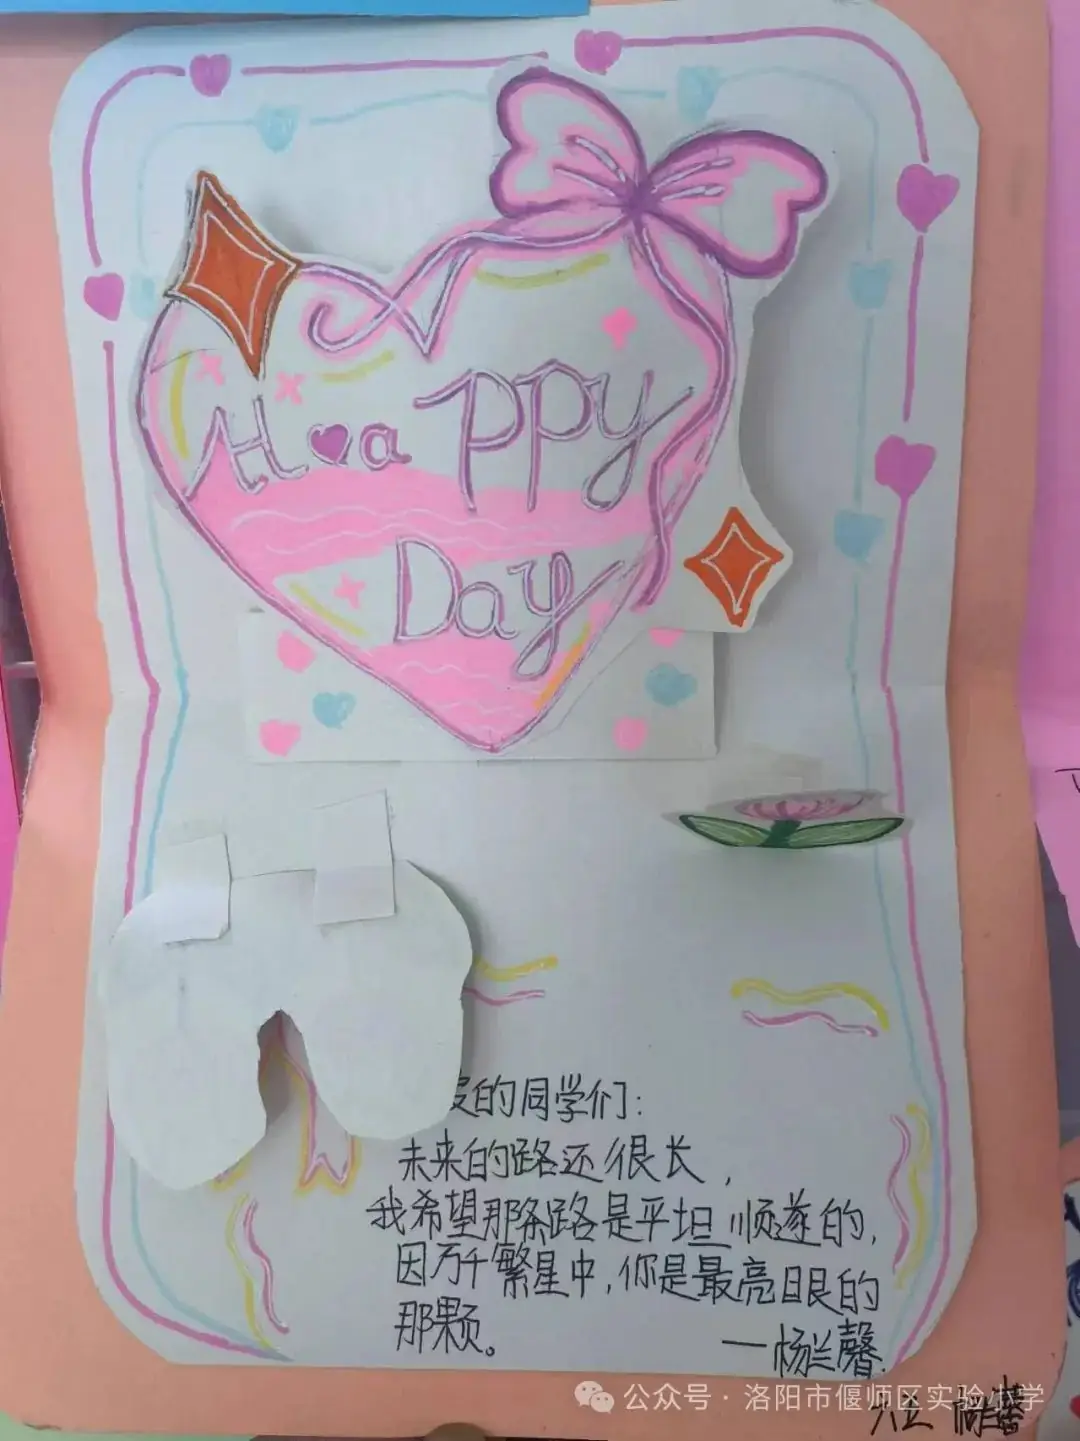 Happy
Day
的同学们:
未来的路还很长,
我希望那条路是平坦顺遂的,
因万千繁星中,你是最亮眼的
那颗。
—杨兰馨.
公众号·洛阳市偃师区实验小学
六